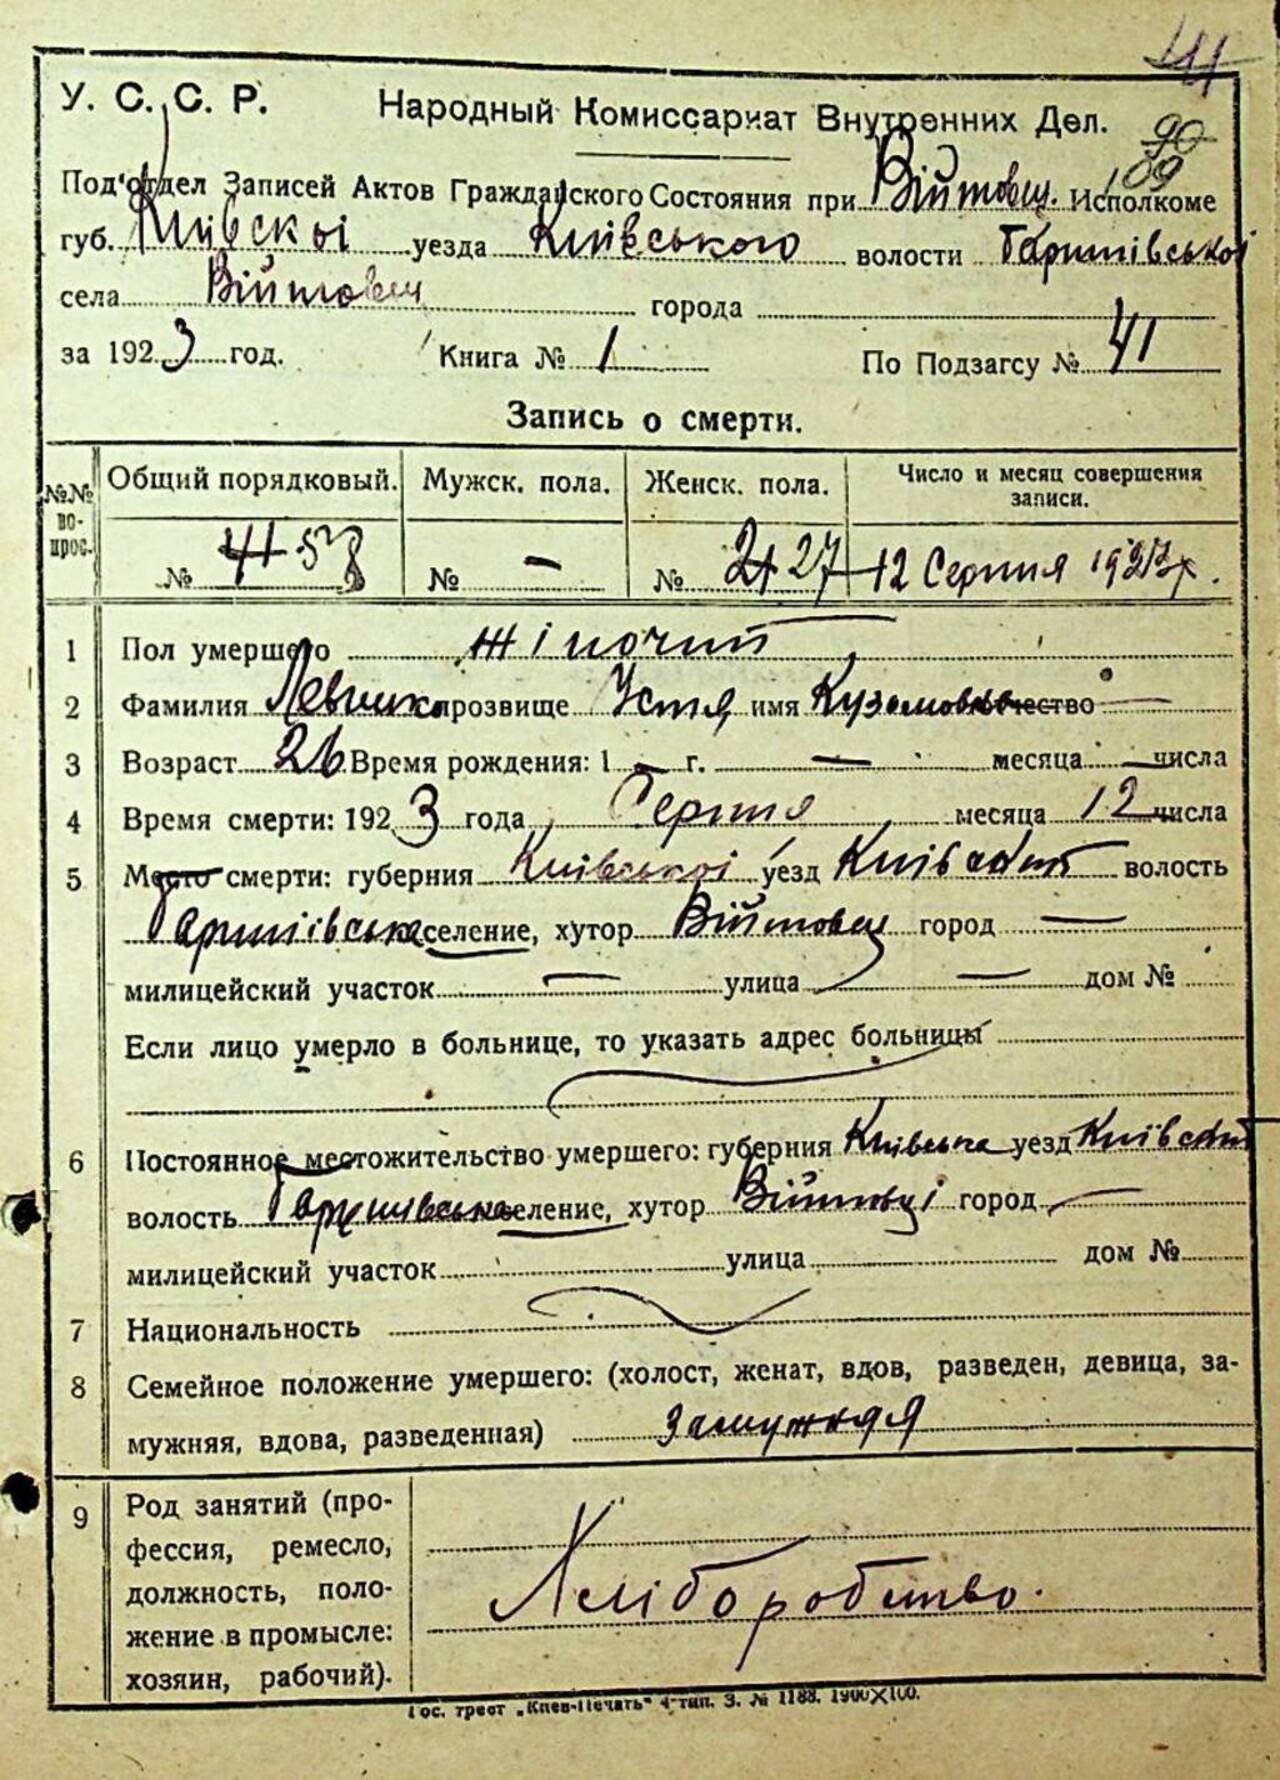 У. С. С. Р. Народный Комиссариат Внутренних Дел. 90
109
Под'отдел Записей Актов Гражданского Состояния при Війтовец. Исполкоме
губ. Київскоі уезда Київського волости Гаришівськоі
села Війтовец города
за 1923 год. Книга № 1 По Подзагсу № 41
Запись о смерти.
№№ вопрос. Общий порядковый. Мужск. пола. Женск. пола. Число и месяц совершения записи.
№ 41 53 № — № 21 27 12 Серпня 1923 р.
1 Пол умершего жіночий
2 Фамилия Левченко прозвище Устя имя Кузьмовна отчество —
3 Возраст 26 Время рождения: 1 — г. — месяца — числа
4 Время смерти: 1923 года Серпня месяца 12 числа
5 Место смерти: губерния Київськоі уезд Київський волость
Гаришівська селение, хутор Війтовец город —
милицейский участок — улица — дом №
Если лицо умерло в больнице, то указать адрес больницы
6 Постоянное местожительство умершего: губерния Київська уезд Київський
волость Гаришівська селение, хутор Війтовці город —
милицейский участок улица дом №
7 Национальность
8 Семейное положение умершего: (холост, женат, вдов, разведен, девица, за-
мужняя, вдова, разведенная) замужняя
9 Род занятий (про-
фессия, ремесло,
должность, поло-
жение в промысле:
хозяин, рабочий).
Хліборобство.
Гос. трест „Киев-Печать" 4 тип. З. № 1188. 1900×100.